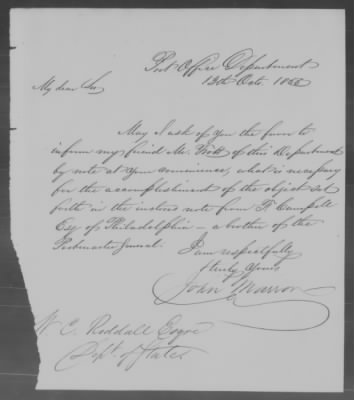 Post Office Department
13th Octo. 1856
My dear Sir
May I ask of you the favor to
inform my friend Mr. Bott of this Department
by note at your convenience, what is necessary
for the accomplishment of the object set
forth in the inclosed note from F. Campbell
Esq of Philadelphia – a brother of the
Postmaster General.
I am respectfully
& truly Yours
John Marron
W C. Reddall Esqre
Dept. of State